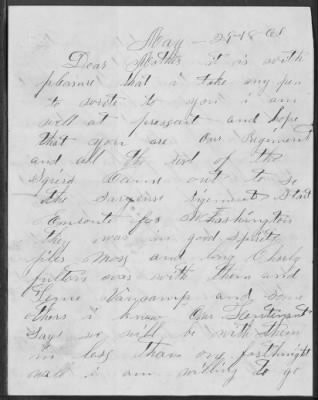 May - 29 1861
Dear Mother it is with
pleasure that i take my pen
to write to you i am
well at pressant and hope
that you are Our Regiment
and all the rest of the
Came out to se
the Regiment Start
for Washington
they was in good Spirits
files Moss and Charly
fulton was with them and
Vancamp and Some
others i know Our Leutenant
Says we will be with them
in less than one fortnight
well i am willing to go